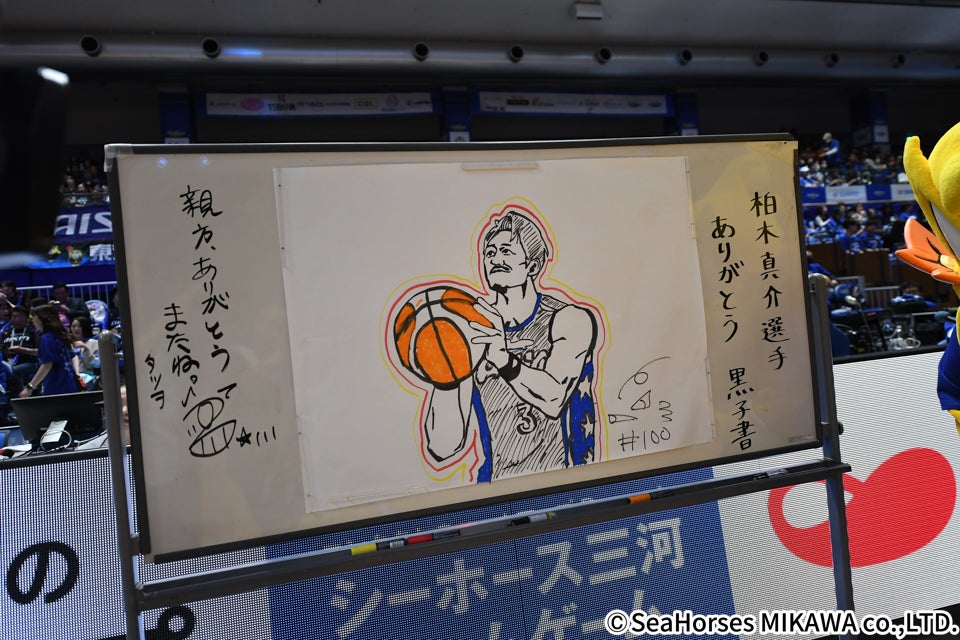 柏木真介選手
ありがとう
黒子書
3
#100
親方、ありがとう
またね。
タツヲ
AIS
東
の
シーホース三河
ムゲーム
©SeaHorses MIKAWA co.,LTD.